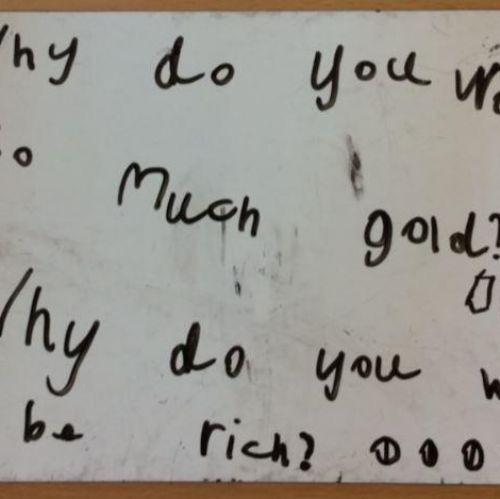 hy do you
o much gold?
hy do you
be rich?